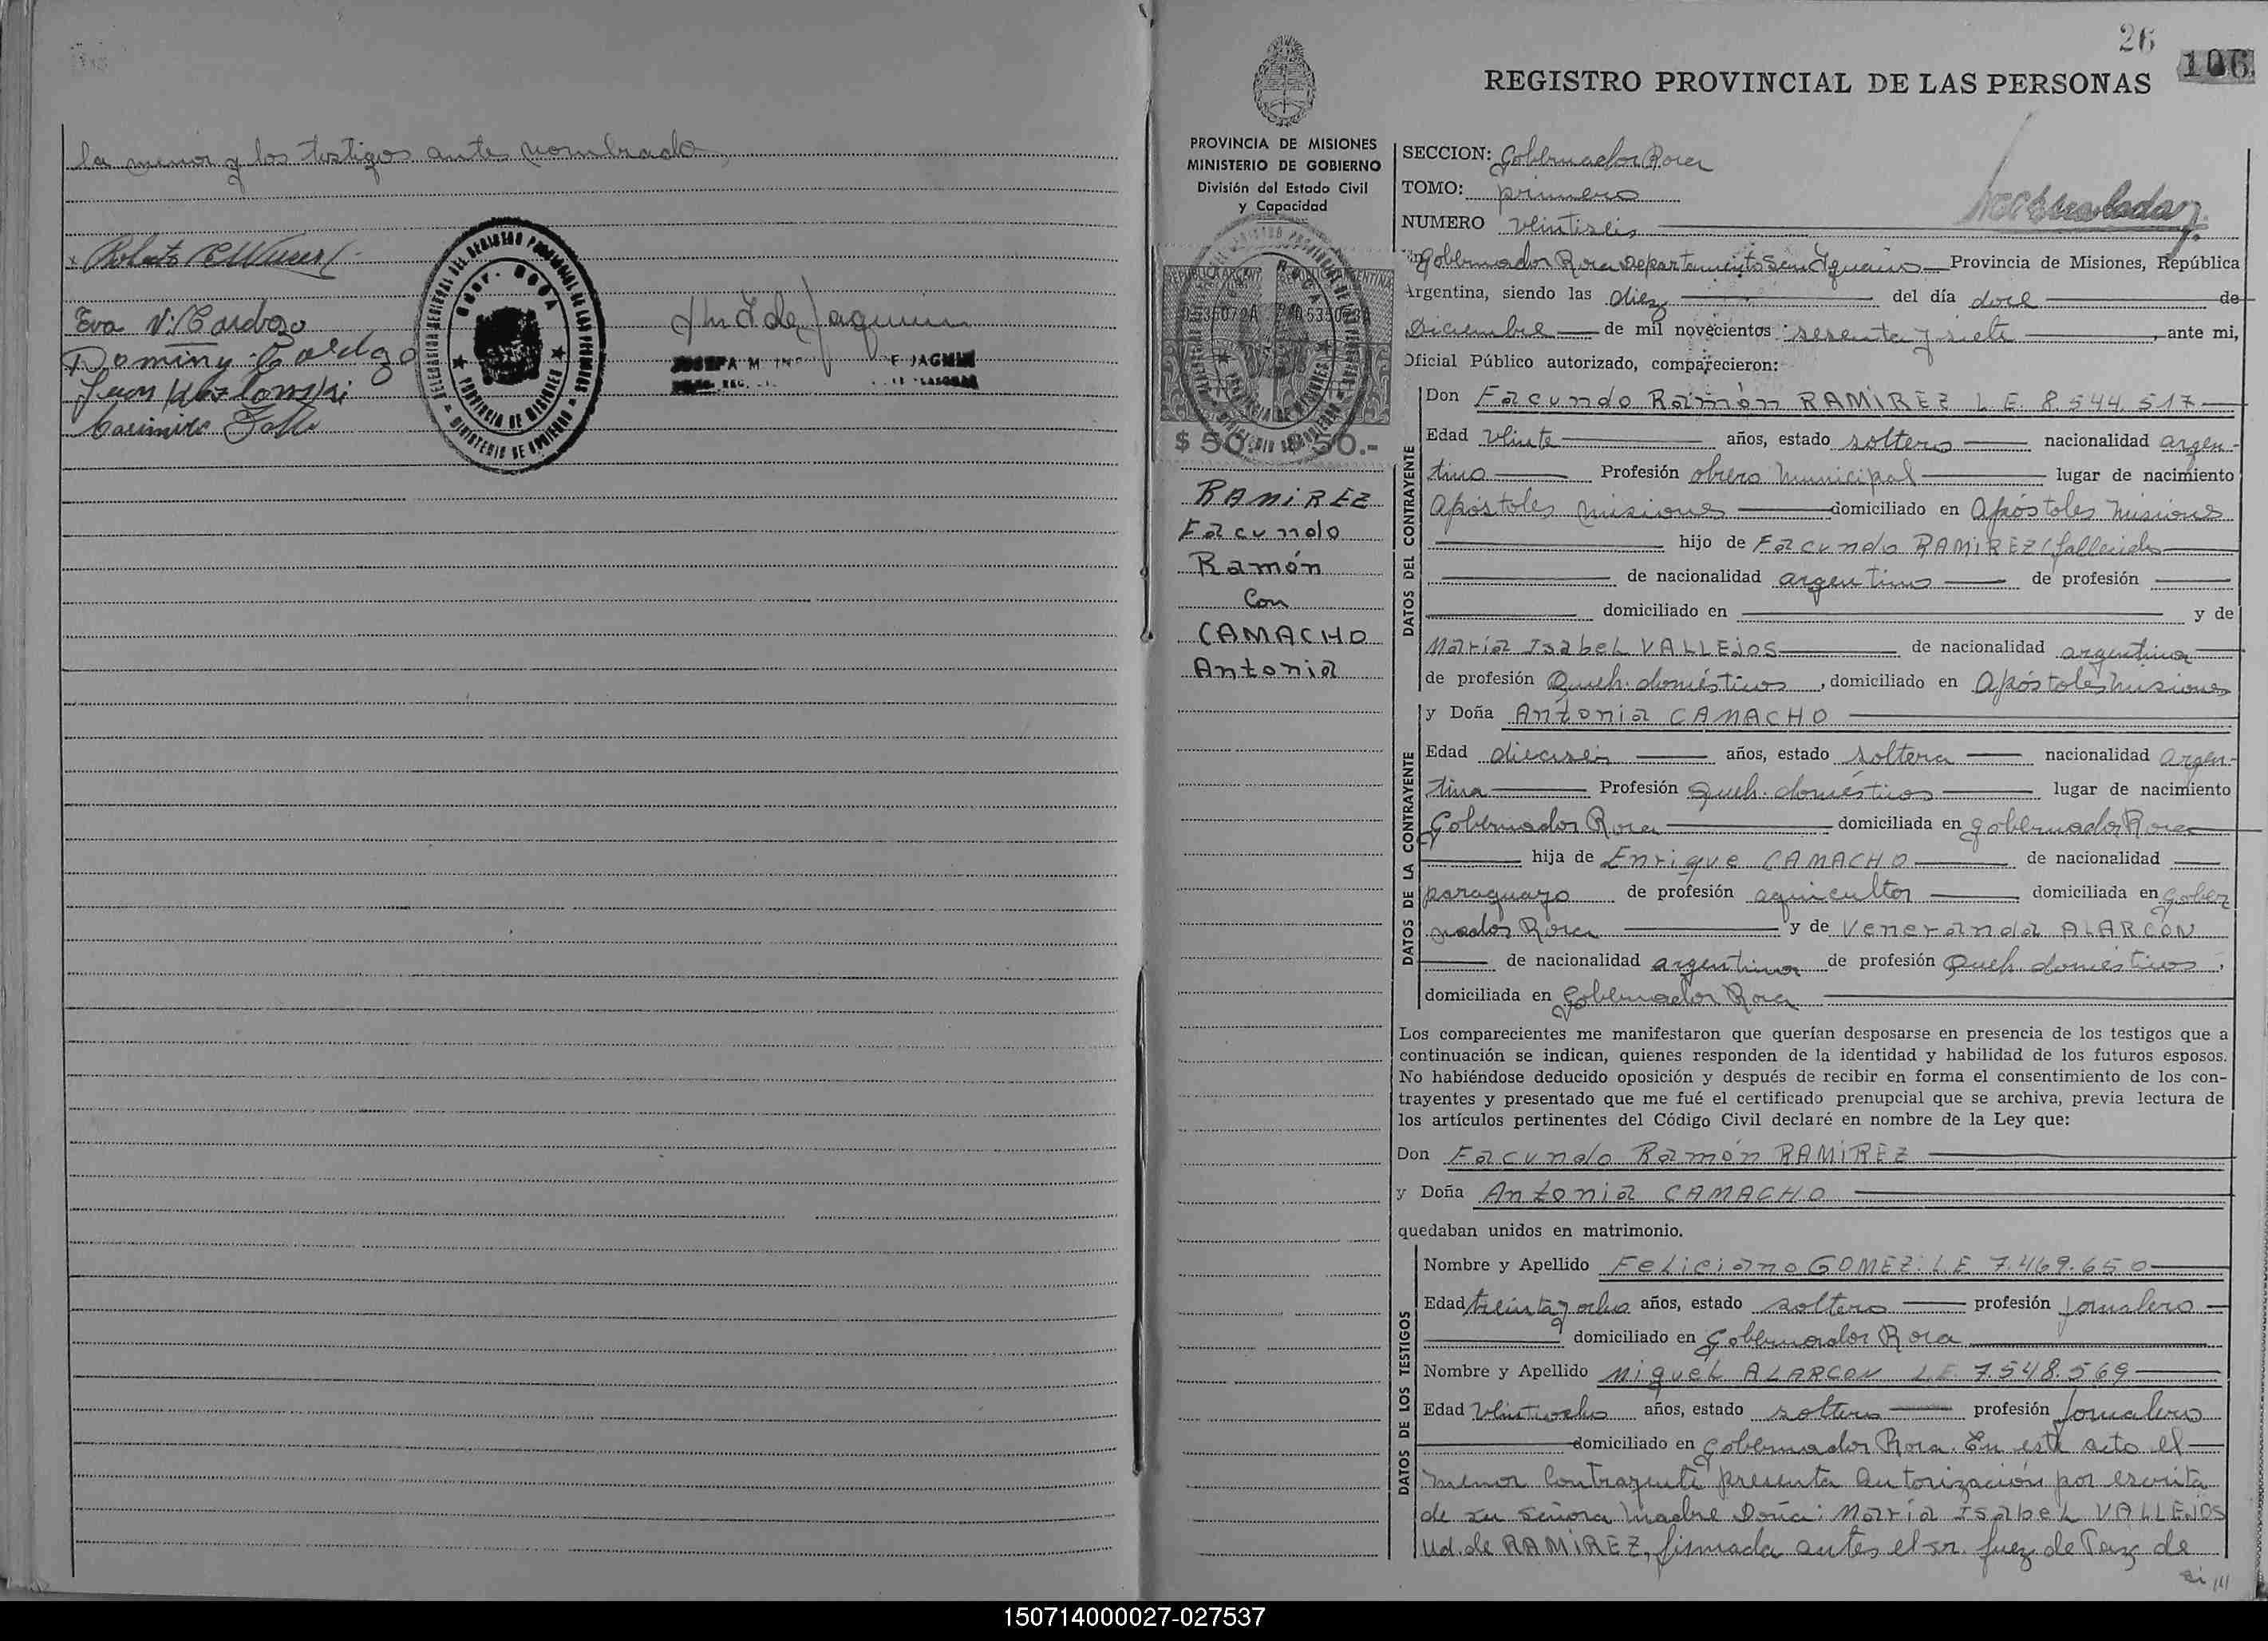 la menor y los testigos ante nombrado
Eva V. Cardozo
Juan Kozlowski
Casimiro
DELEGACION REGIONAL DEL REGISTRO PROVINCIAL DE LAS PERSONAS
GOBR. ROCA
PROVINCIA DE MISIONES
MINISTERIO DE GOBIERNO
26
106
REGISTRO PROVINCIAL DE LAS PERSONAS
PROVINCIA DE MISIONES
MINISTERIO DE GOBIERNO
División del Estado Civil
y Capacidad
$ 50.- $ 50.-
RAMIREZ
Facundo
Ramón
Con
CAMACHO
Antonia
SECCION: Gobernador Roca
TOMO: primero
NUMERO veintiseis
En Gobernador Roca Departamento San Ignacio Provincia de Misiones, República
Argentina, siendo las diez del día doce de
diciembre de mil novecientos sesenta y siete, ante mi,
Oficial Público autorizado, comparecieron:
DATOS DEL CONTRAYENTE
Don Facundo Ramón RAMIREZ L E. 8.544.517
Edad veinte años, estado soltero nacionalidad argen-
tino Profesión obrero Municipal lugar de nacimiento
Apóstoles Misiones domiciliado en Apóstoles Misiones
hijo de Facundo RAMIREZ (fallecido
de nacionalidad argentino de profesión
domiciliado en y de
María Isabel VALLEJOS de nacionalidad argentina
de profesión Queh. domésticos, domiciliado en Apóstoles Misiones
DATOS DE LA CONTRAYENTE
y Doña Antonia CAMACHO
Edad dieciseis años, estado soltera nacionalidad argen-
tina Profesión Queh. domésticos lugar de nacimiento
Gobernador Roca domiciliada en Gobernador Roca
hija de Enrique CAMACHO de nacionalidad
paraguayo de profesión agricultor domiciliada en Gober
nador Roca y de Veneranda ALARCON
de nacionalidad argentina de profesión Queh. domésticos,
domiciliada en Gobernador Roca
Los comparecientes me manifestaron que querían desposarse en presencia de los testigos que a
continuación se indican, quienes responden de la identidad y habilidad de los futuros esposos.
No habiéndose deducido oposición y después de recibir en forma el consentimiento de los con-
trayentes y presentado que me fué el certificado prenupcial que se archiva, previa lectura de
los artículos pertinentes del Código Civil declaré en nombre de la Ley que:
Don Facundo Ramón RAMIREZ
y Doña Antonia CAMACHO
quedaban unidos en matrimonio.
DATOS DE LOS TESTIGOS
Nombre y Apellido Feliciano GOMEZ. L.E 7.469.650
Edad treinta y ocho años, estado soltero profesión jornalero
domiciliado en Gobernador Roca
Nombre y Apellido Miguel ALARCON L.E 7.548.569
Edad veintiocho años, estado soltero profesión jornalero
domiciliado en Gobernador Roca. En este acto el
menor contrayente presenta autorización por escrita
de su señora madre Doña: María Isabel VALLEJOS
Ud. de RAMIREZ, firmada antes el sr. Juez de Paz de
150714000027-027537